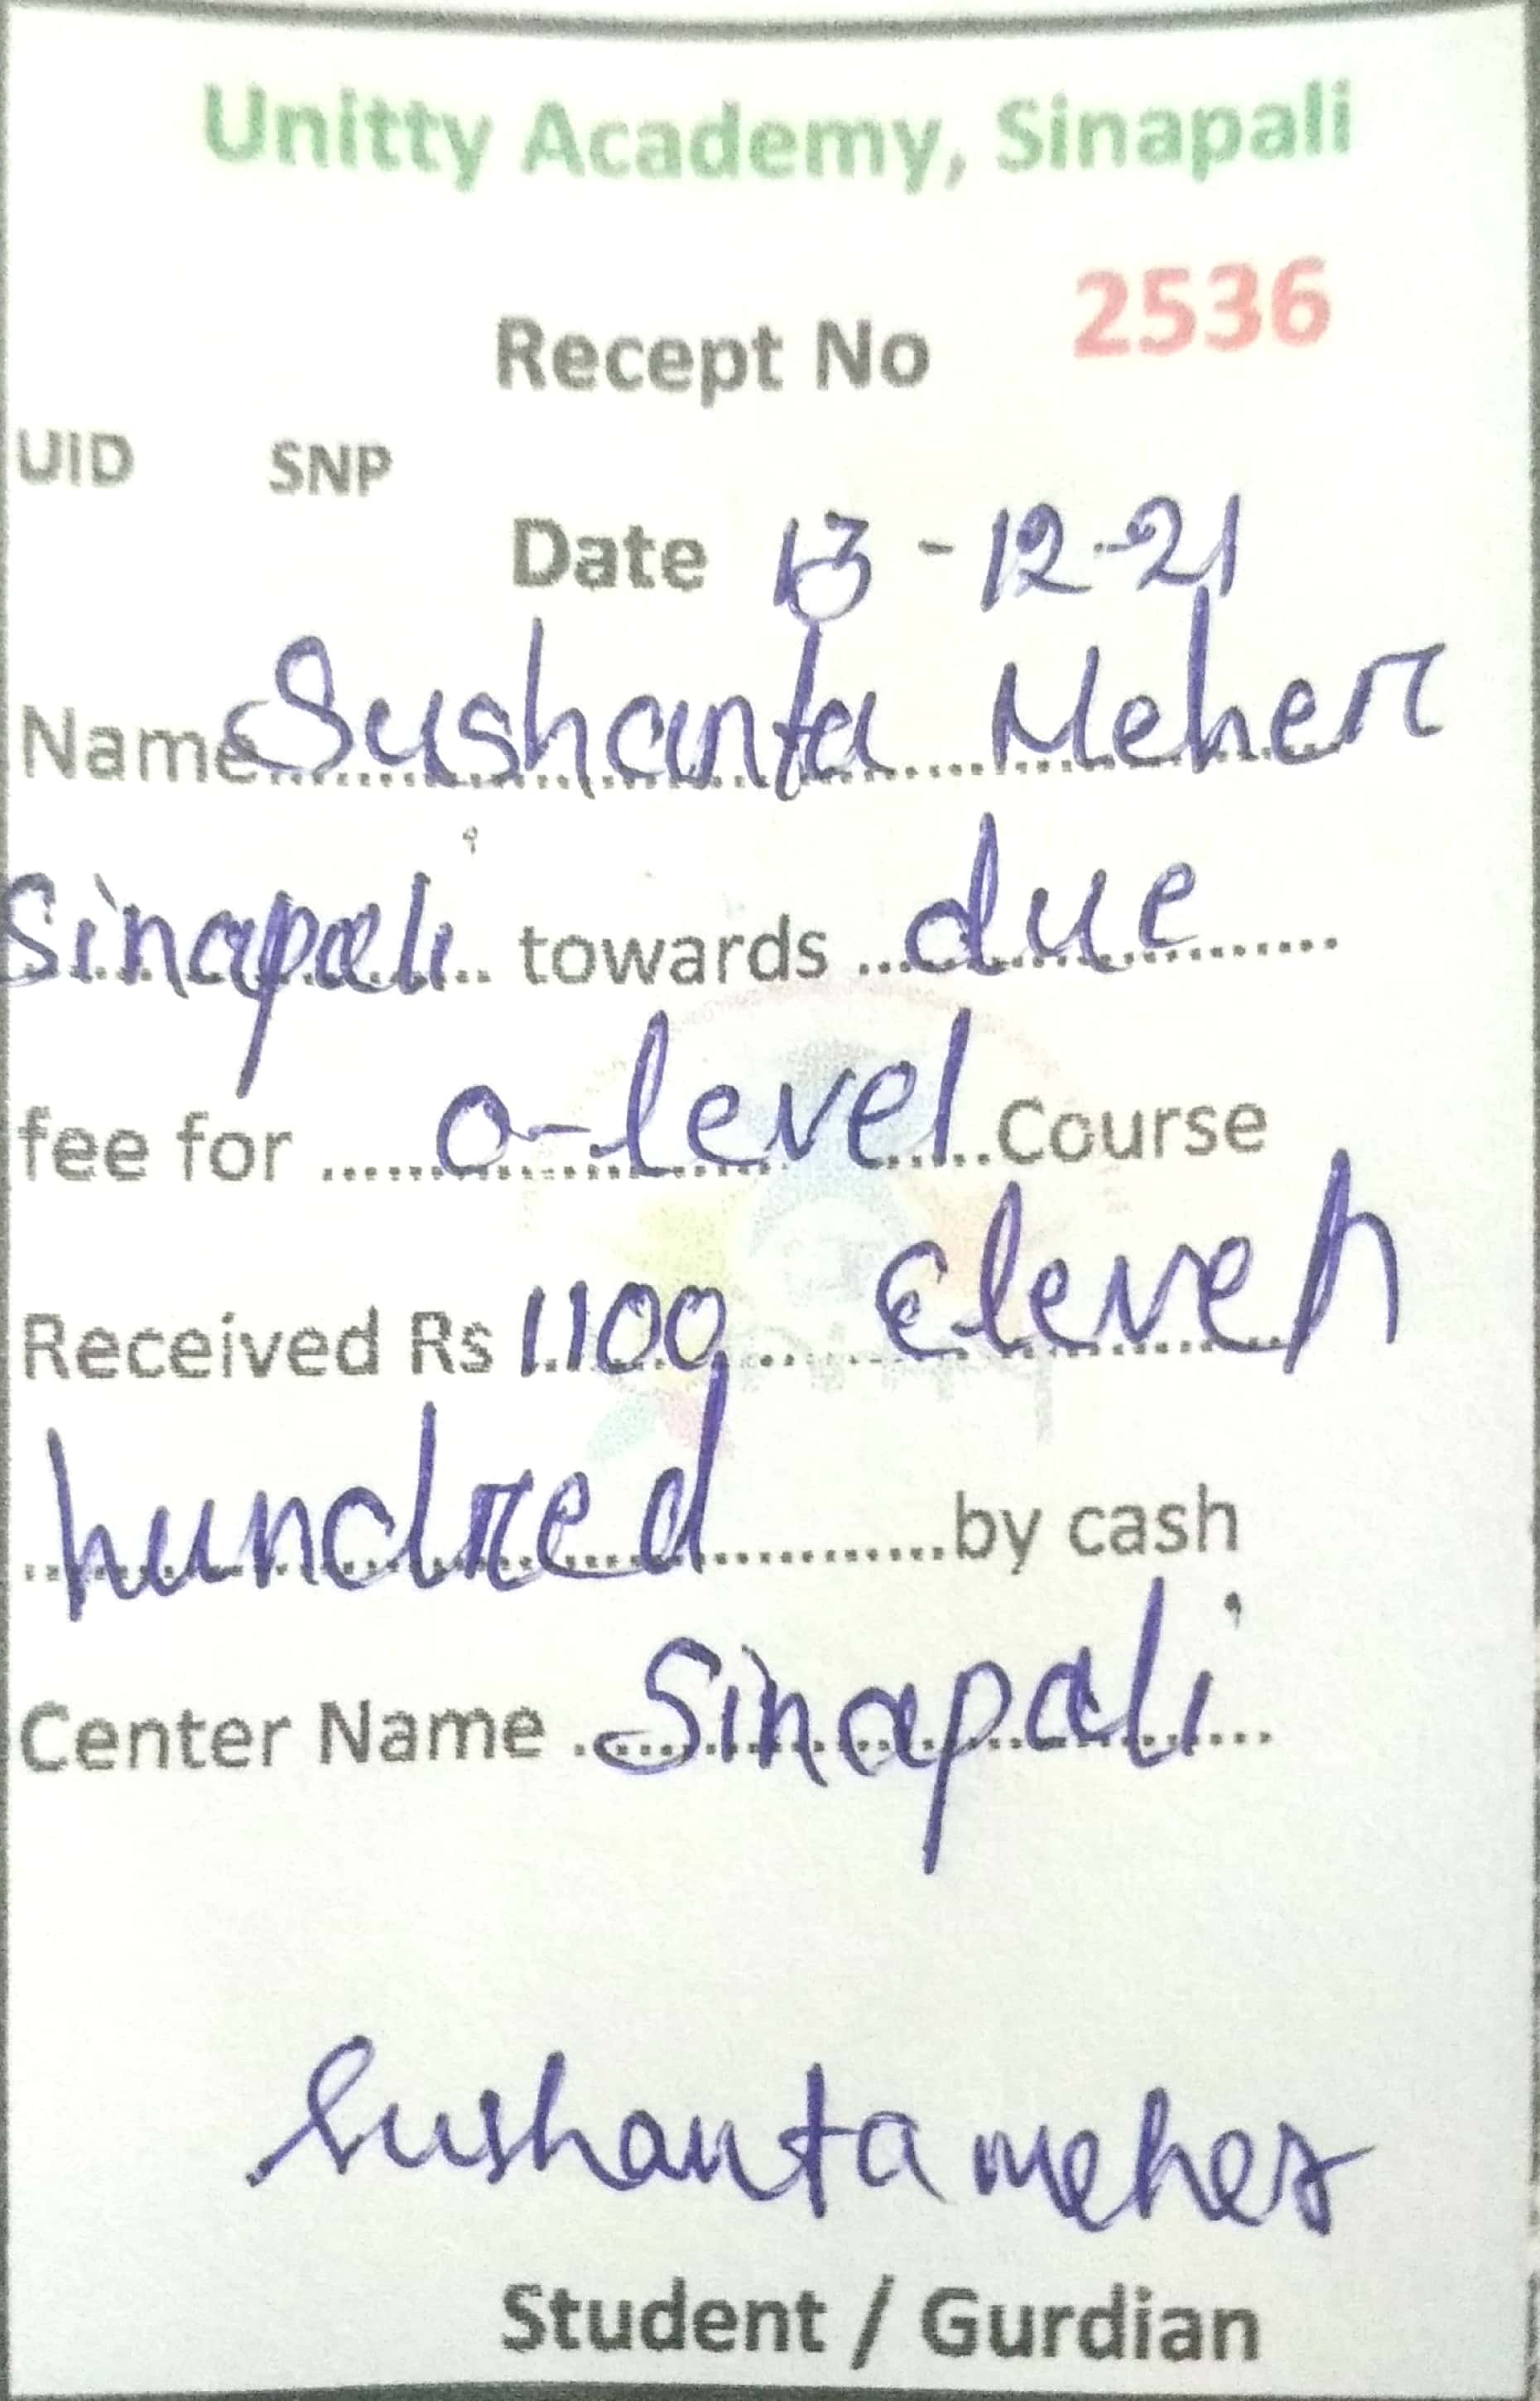 Unitty Academy, Sinapali
Recept No 2536
UID SNP
Date 13-12-21
Name Sushanta Meher
Sinapali towards due
fee for o-level Course
Received Rs 1100 Eleven
hundred by cash
Center Name Sinapali
Sushanta meher
Student / Gurdian